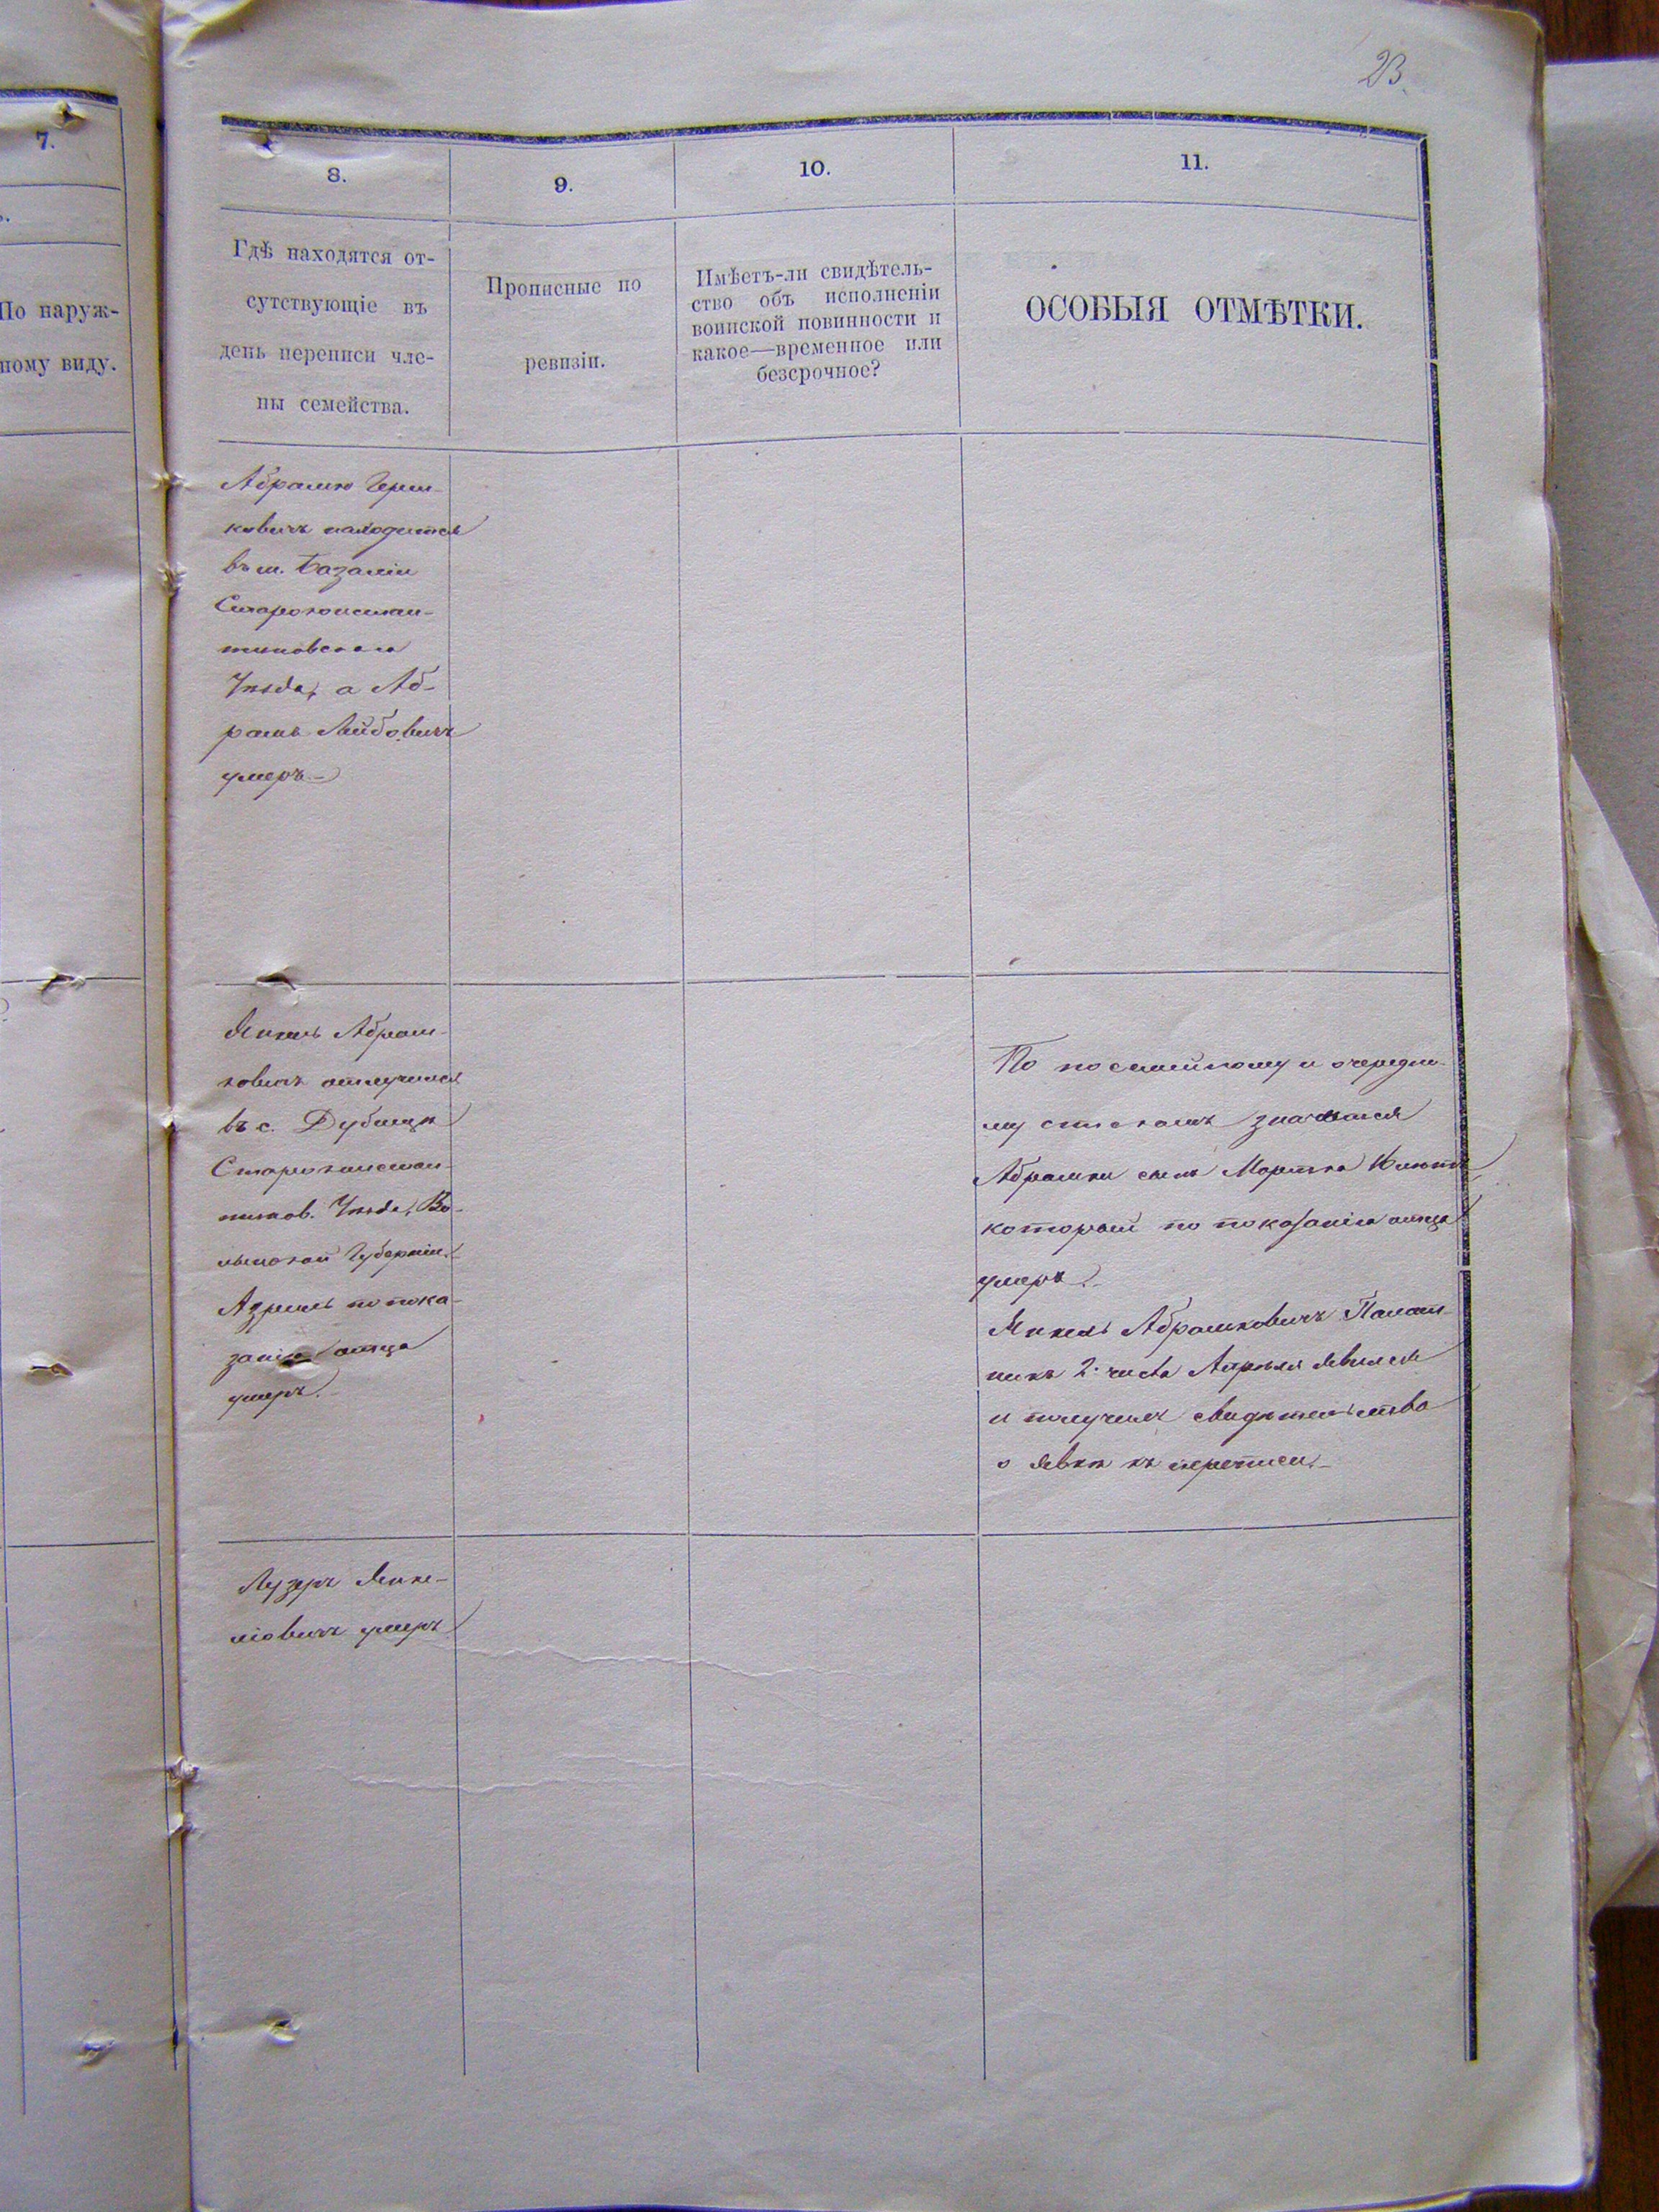 23.
7.
По наруж-
ному виду.
8.
9.
10.
11.
Гдѣ находятся от-
сутствующіе въ
день переписи чле-
ны семейства.
Прописные по
ревизіи.
Имѣетъ-ли свидѣтель-
ство объ исполненіи
воинской повинности и
какое—временное или
безсрочное?
ОСОБЫЯ ОТМѢТКИ.
Абрамко Герш-
ковичъ находится
въ м. Базаліи
Старокостан-
тиновскаго
Уѣзда, а Аб-
рамъ Лейбовичъ
умеръ.
Янкель Абрам-
ковичъ отлучился
въ с.
Старокостан-
тинов. Уѣзда, Во-
лынской Губерніи.
Азриль по пока-
занію отца
умеръ.
По посемейному и очередно-
му спискамъ значился
Абрамки сынъ
который по показанію отца
умеръ.
Янкель Абрамковичъ
2. числа Апрѣля явился
и получилъ свидѣтельство
о явкѣ къ переписи.
Лузеръ Янке-
ліовичъ умеръ